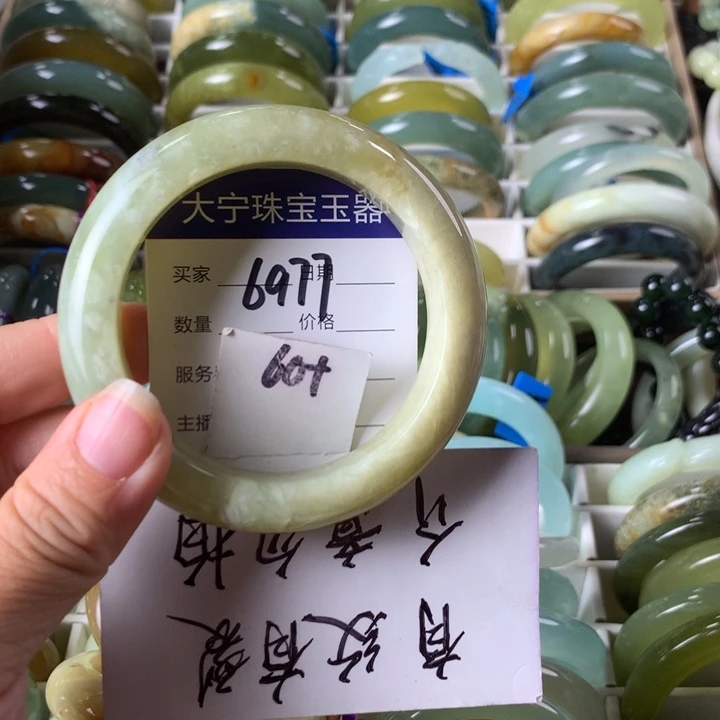 大宁珠宝玉器
买家 6977 日期
数量 价格
服务
主播
60+
有纹有裂
介意勿拍